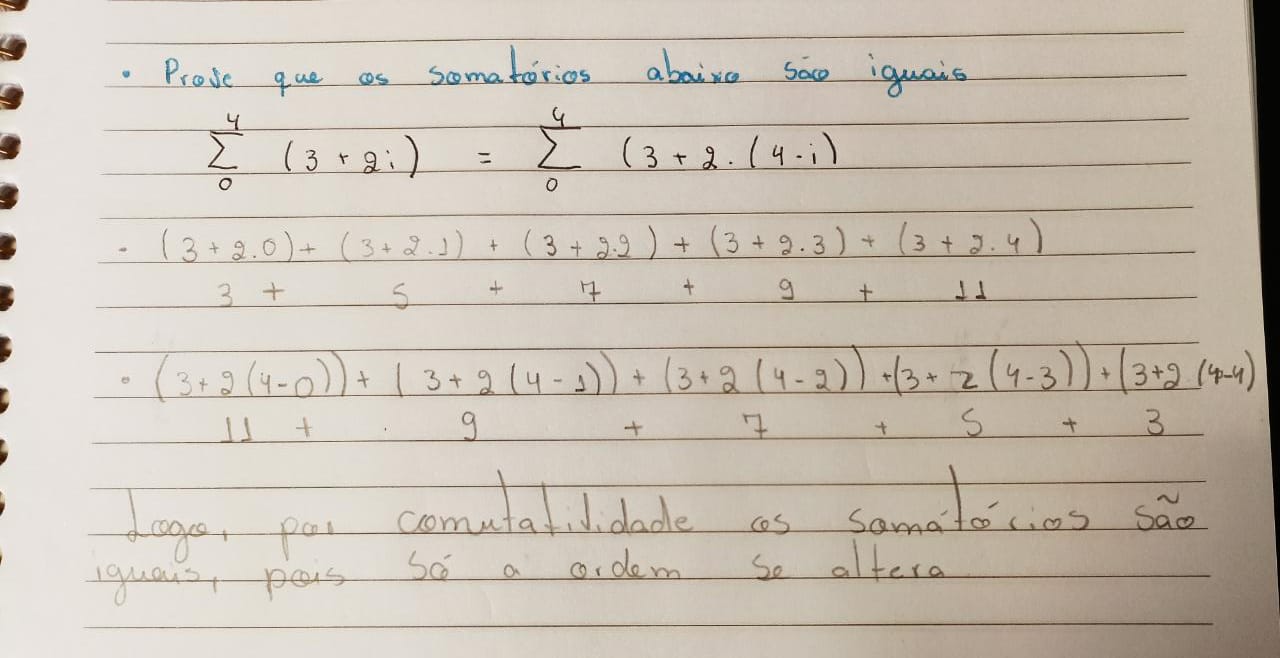 • Prove que os somatórios abaixo são iguais
4 4
Σ (3 + 2i) = Σ (3 + 2.(4-i)
0 0
- (3+2.0)+ (3+2.1) + (3+2.2) + (3+2.3) + (3+2.4)
3 + 5 + 7 + 9 + 11
• (3+2(4-0))+ (3+2(4-1)) + (3+2(4-2)) +(3+2(4-3)) + (3+2.(4-4)
11 + 9 + 7 + 5 + 3
Logo, por comutatividade os somátórios são
iguais, pois só a ordem se altera